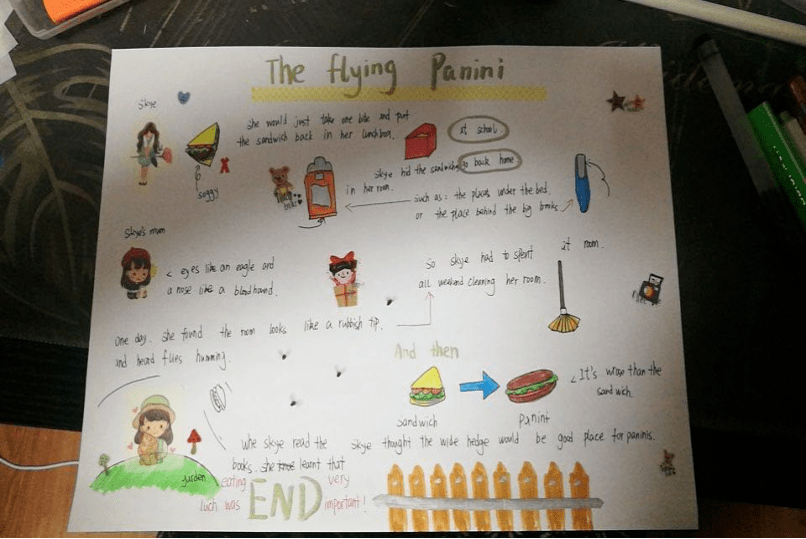 The flying Panini
Skye
She would just take one bite and put
the sandwich back in her lunchbox.
at school
soggy
Skye hid the sandwich
go back home
in her room.
such as: the places under the bed.
or the place behind the big books
Skye's mum
< eyes like an eagle and
a nose like a bloodhound.
So skye had to spent it room.
all weekend cleaning her room.
One day. She found the room looks like a rubbish tip.
and heard flies humming.
And then
sandwich
panini
< It's worse than the
sandwich.
Whe skye read the
books. she learnt that
skye thought the wide hedge would be good place for paninis.
garden
eating very
luch was important!
END